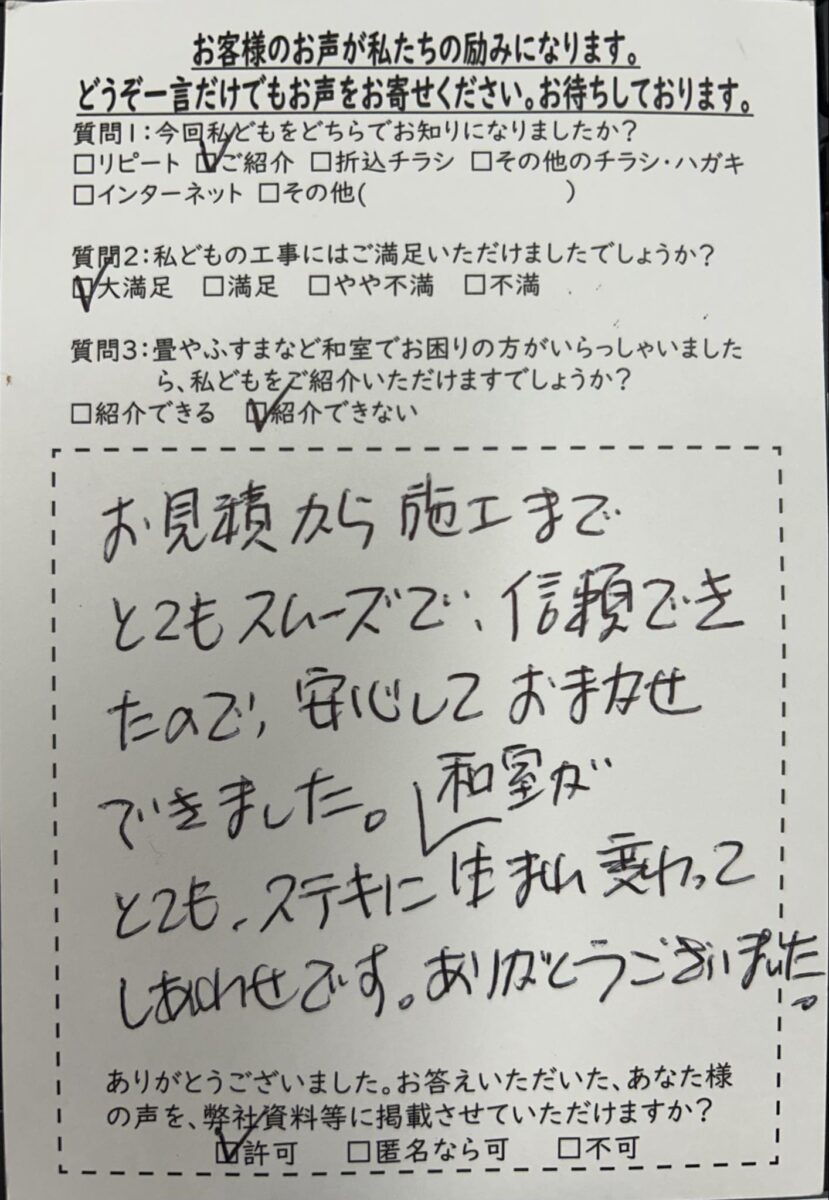 お客様のお声が私たちの励みになります。
どうぞ一言だけでもお声をお寄せください。お待ちしております。
質問1:今回私どもをどちらでお知りになりましたか?
□リピート ☑ご紹介 □折込チラシ □その他のチラシ・ハガキ
□インターネット □その他( )
質問2:私どもの工事にはご満足いただけましたでしょうか?
☑大満足 □満足 □やや不満 □不満
質問3:畳やふすまなど和室でお困りの方がいらっしゃいました
ら、私どもをご紹介いただけますでしょうか?
□紹介できる ☑紹介できない
お見積から施工まで
とてもスムーズで、信頼でき
たので、安心しておまかせ
できました。和室が
とても、ステキに生まれ変わって
しあわせです。ありがとうございました。
ありがとうございました。お答えいただいた、あなた様
の声を、弊社資料等に掲載させていただけますか?
☑許可 □匿名なら可 □不可